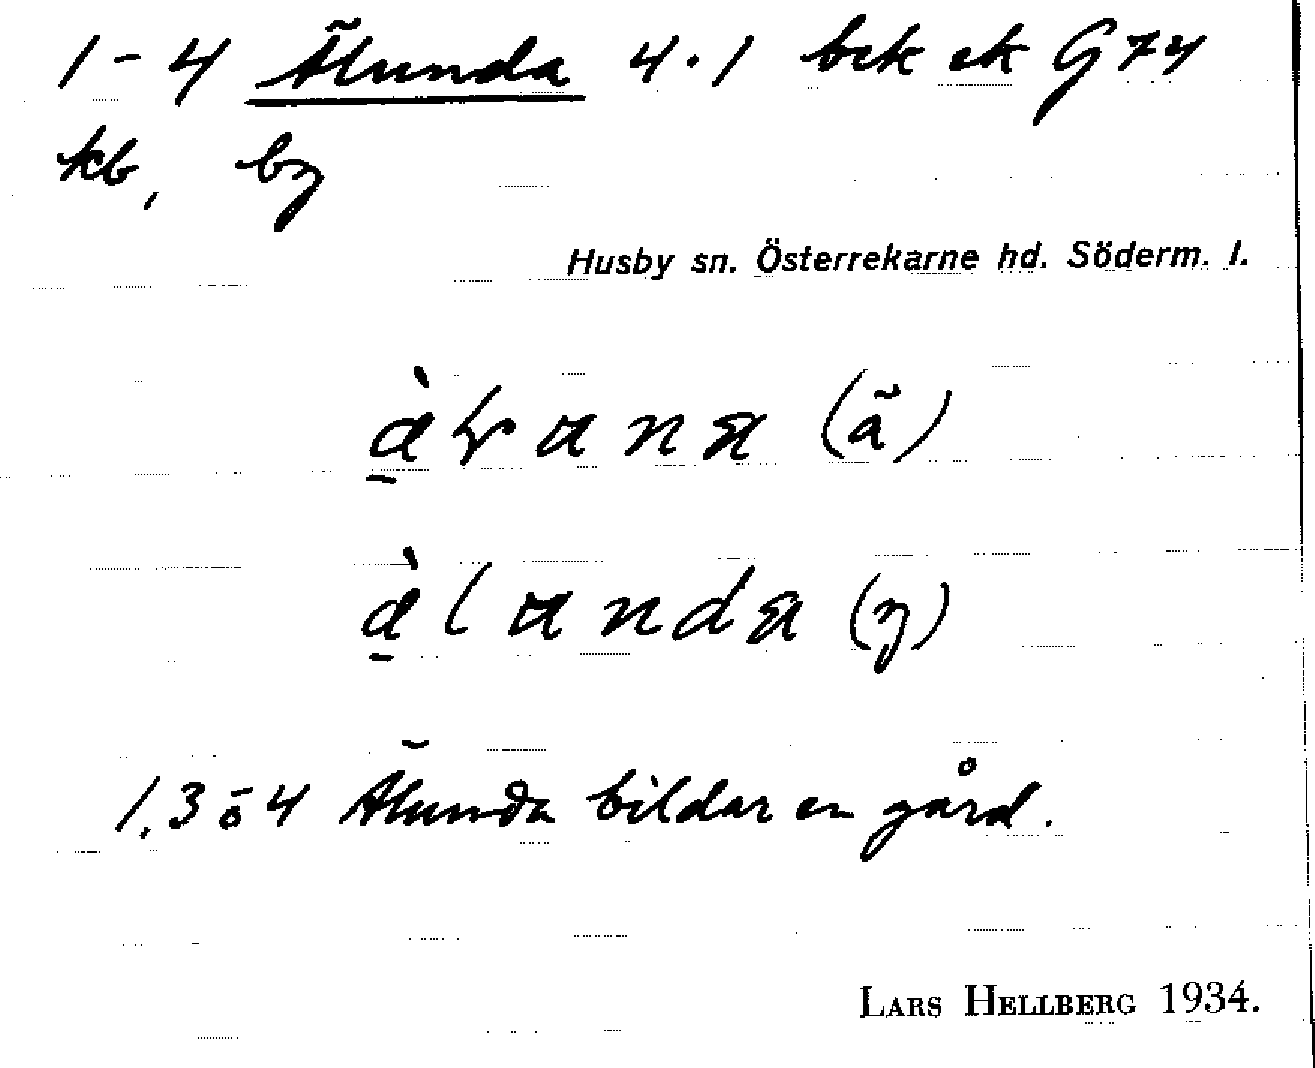 1-4 Älunda 4.1 bek ek G 74
kb, by
Husby sn. Österrekarne hd. Söderm. l.
(ä)
(y)
1, 3 o 4 Älunda bildar en gård.
LARS HELLBERG 1934.